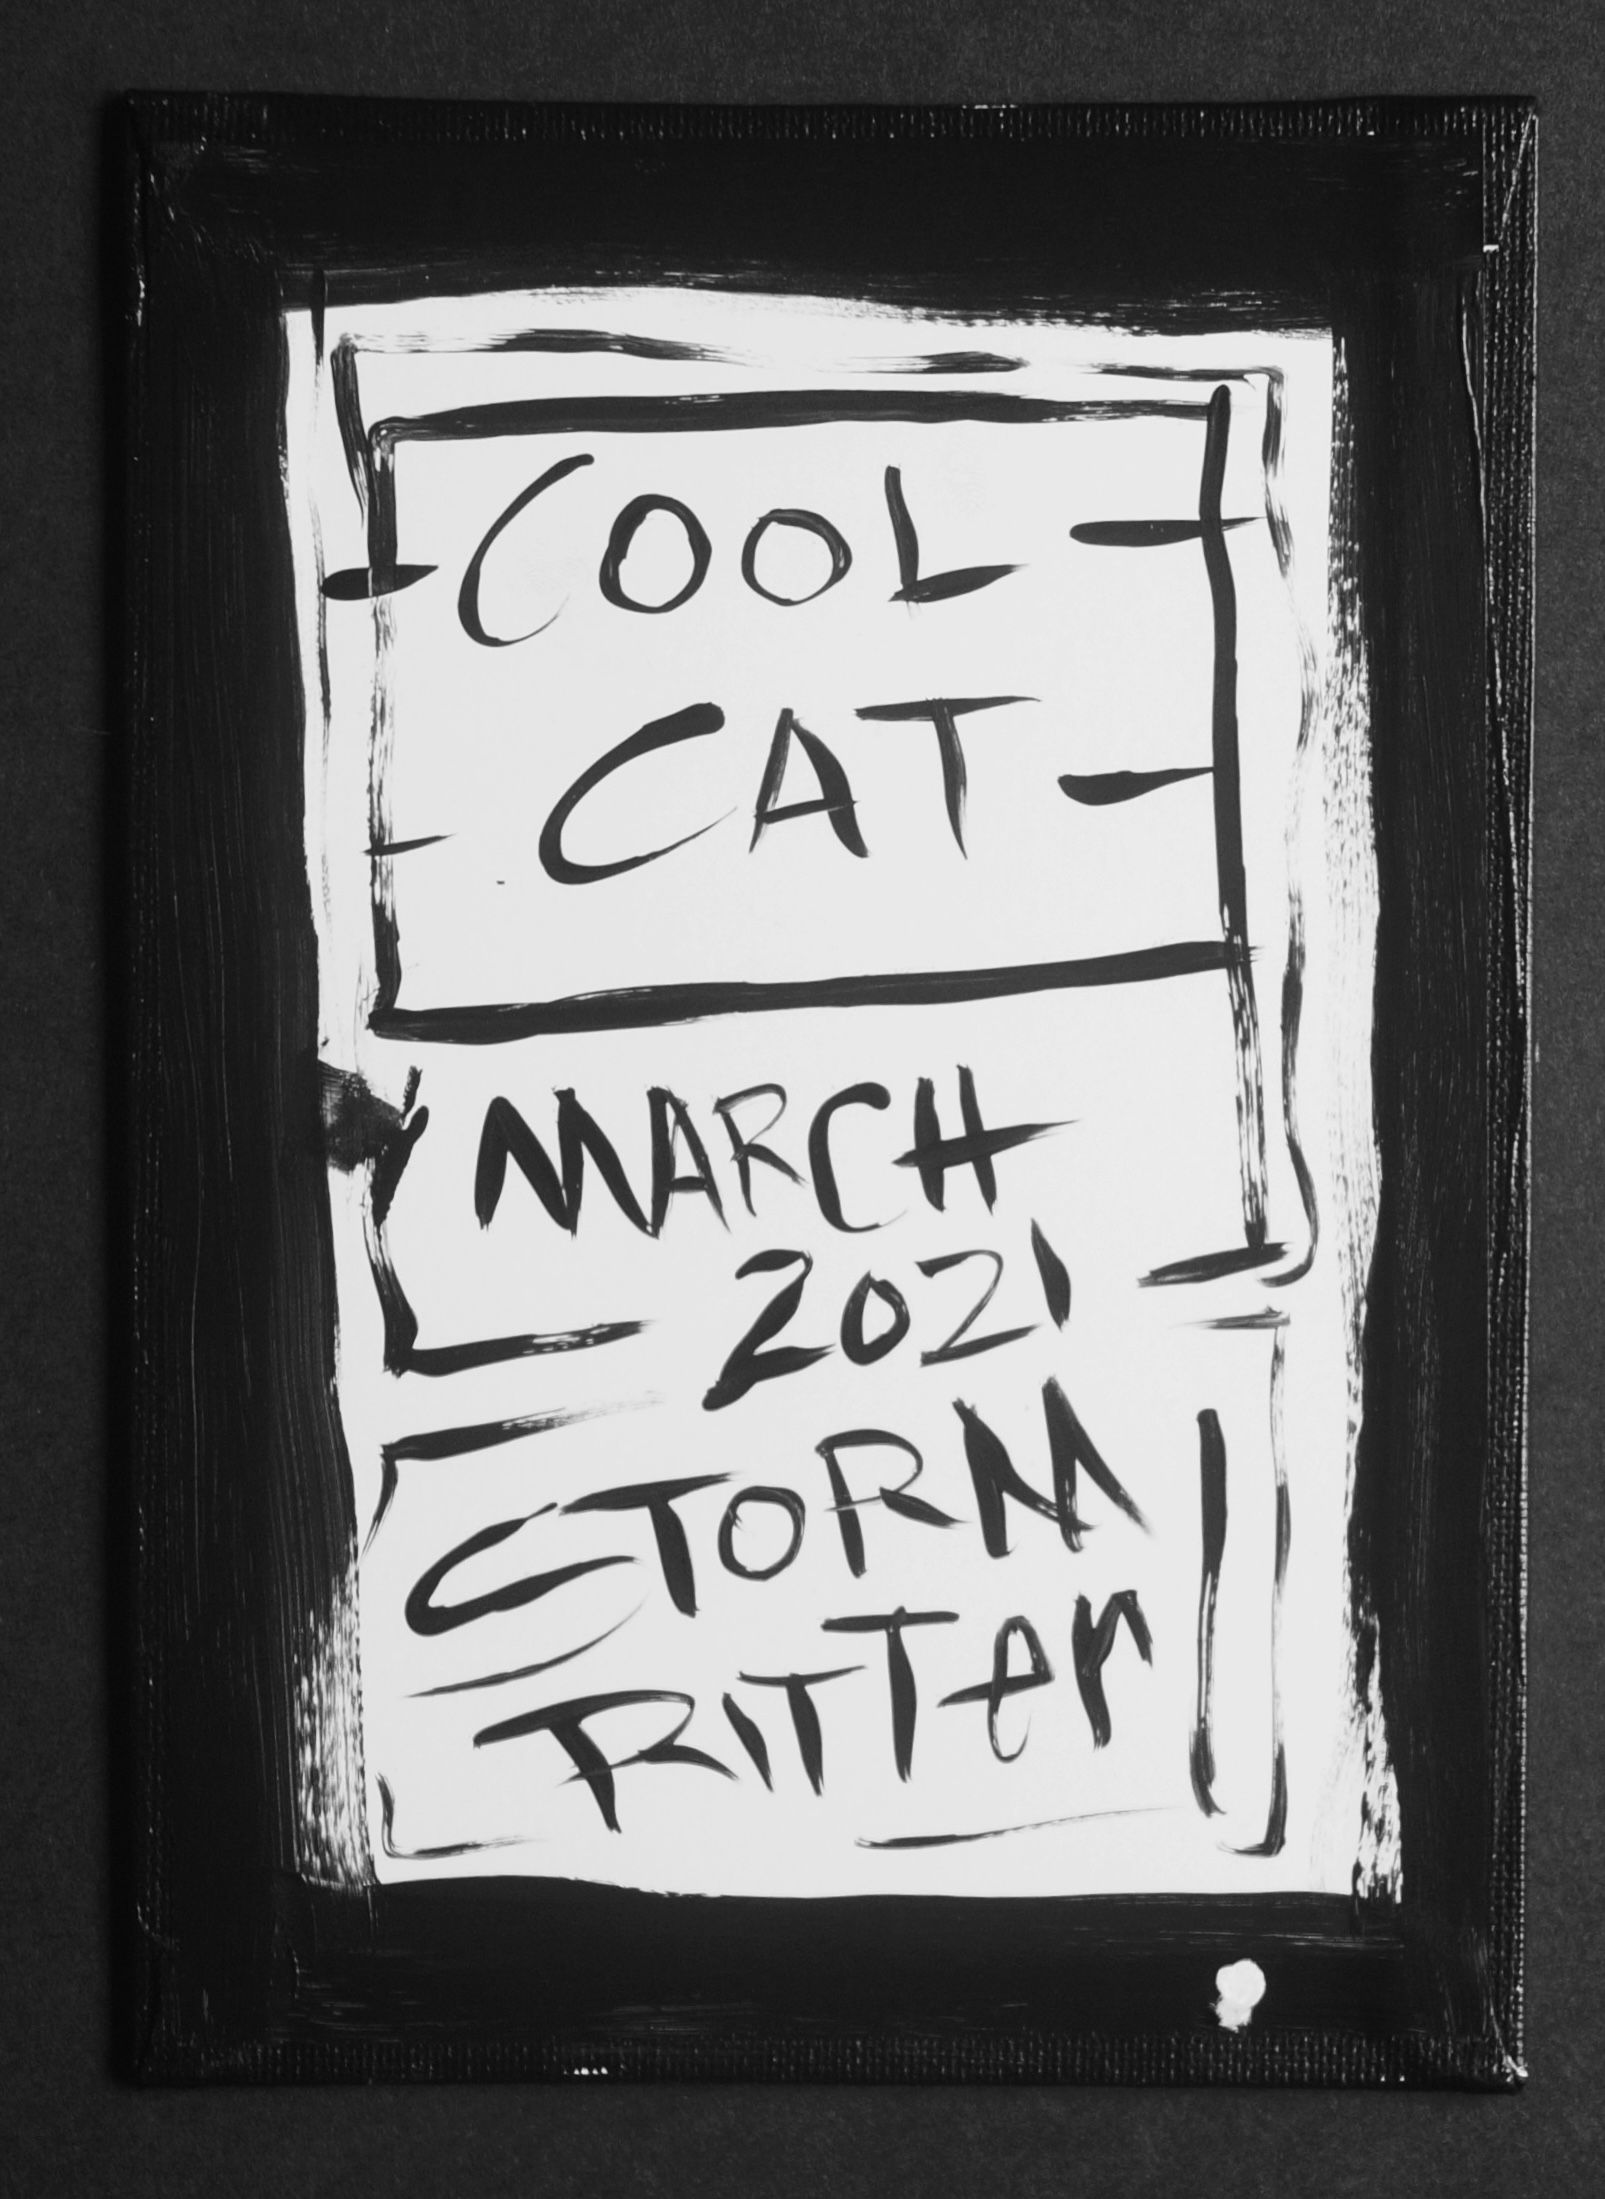 COOL
CAT
MARCH
2021
STORM
RITTer